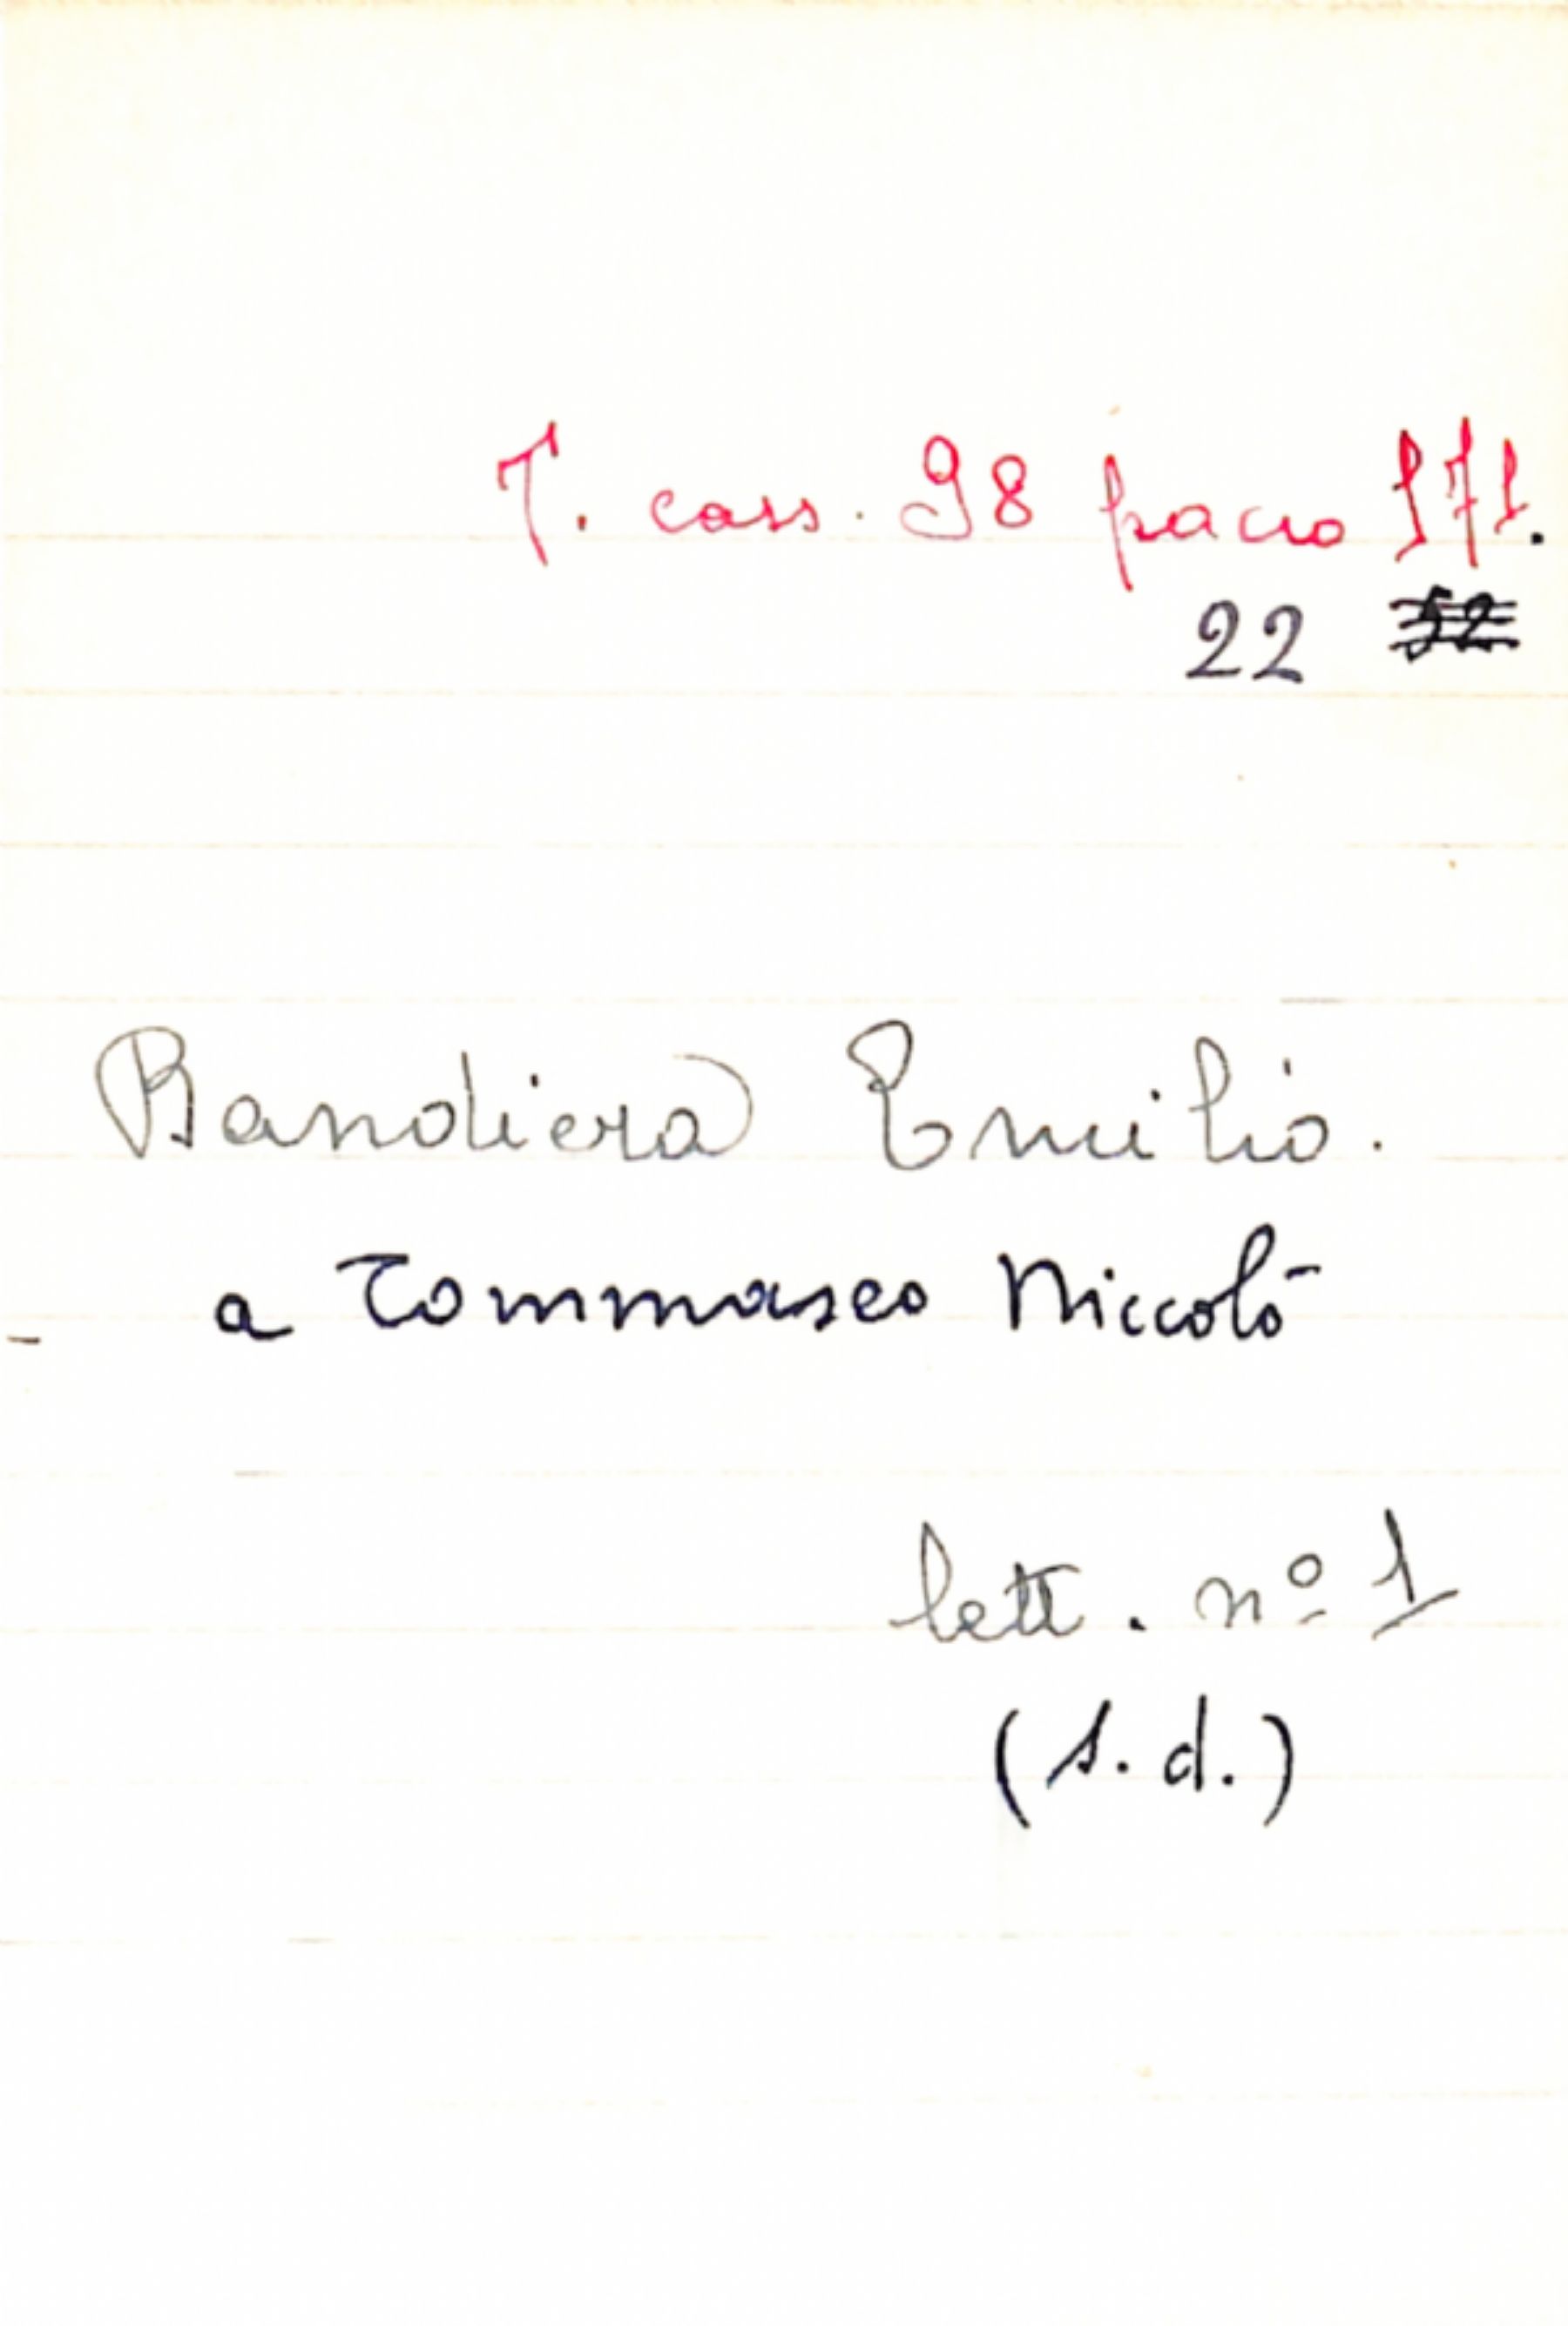 T. cass. 98 pacco 171.
22 52
Bandiera Emilio.
a Tommaseo Niccolò
lett. nº 1
(s.d.)